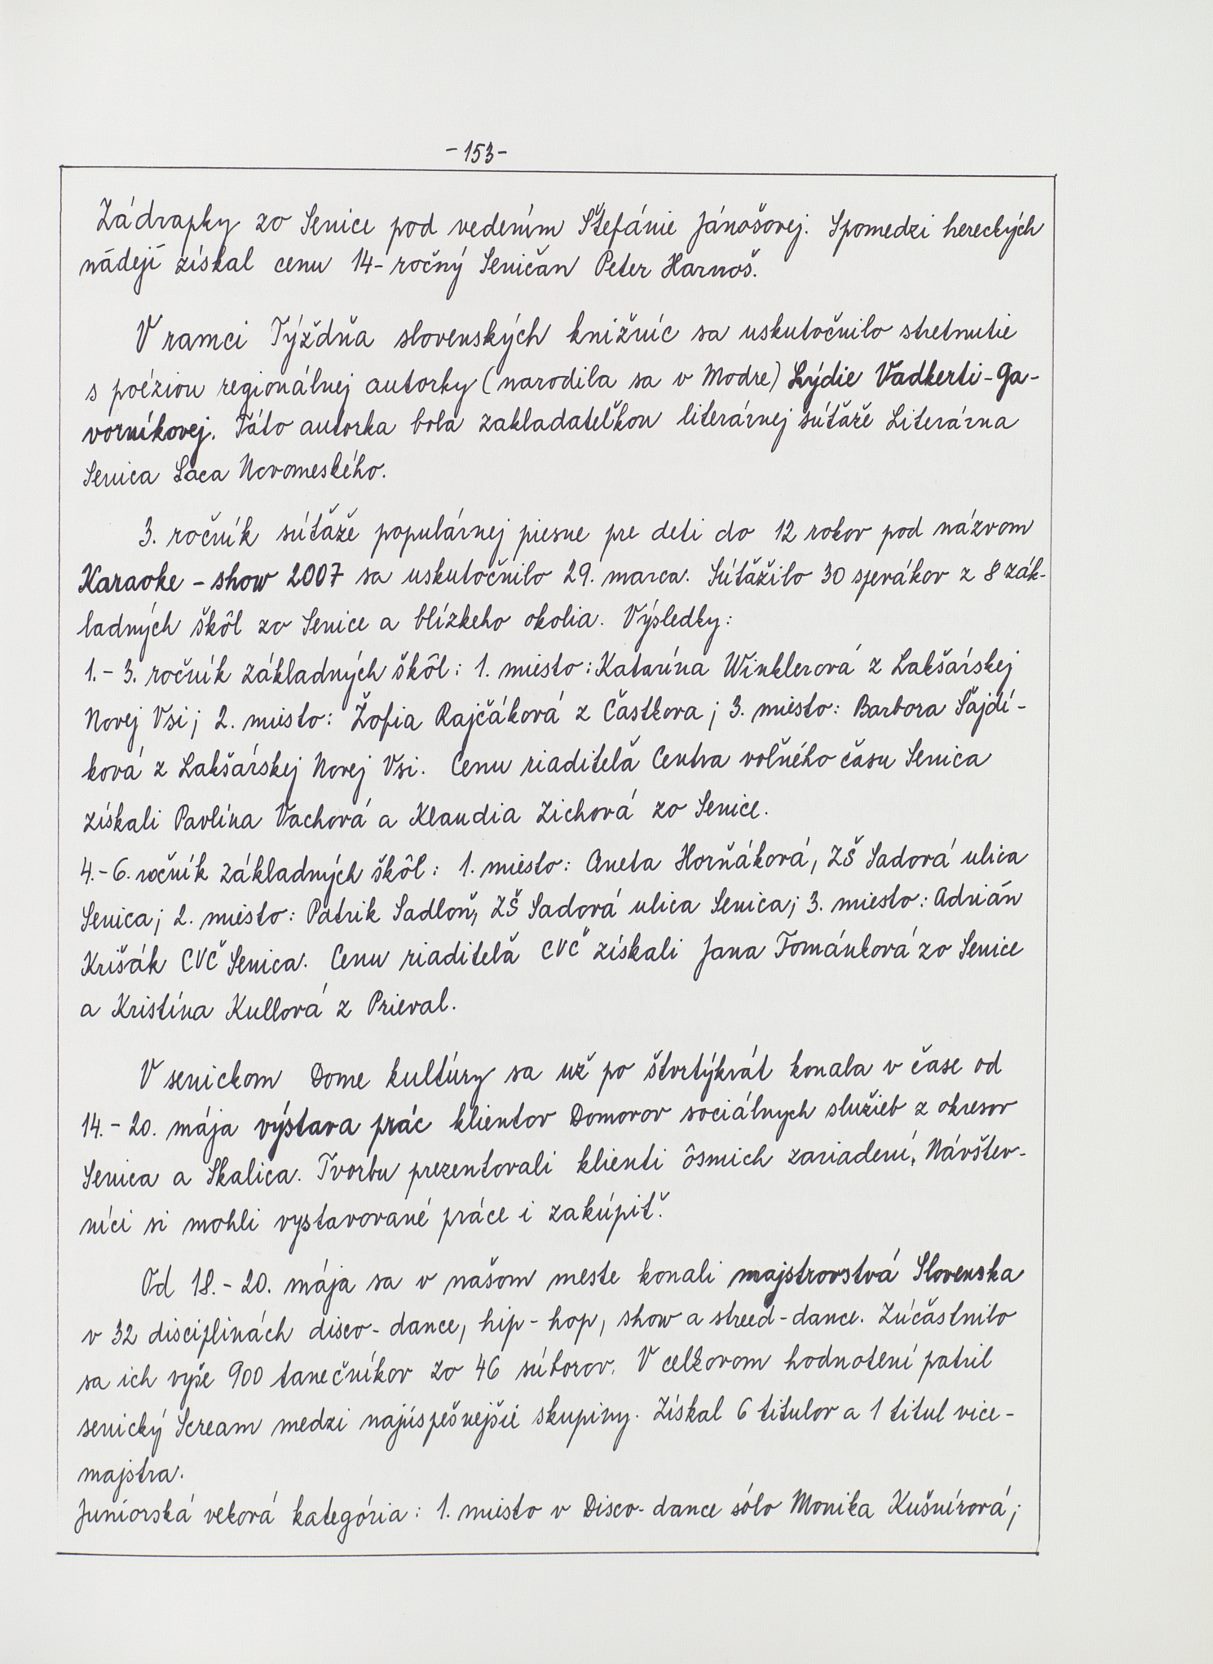 -153-
Zádrapky zo Senice pod vedením Štefánie Jánošovej. Spomedzi hereckých
nádejí získal cenu 14-ročný Seničan Peter Harnoš.
V ramci Týždňa slovenských knižníc sa uskutočnilo stretnutie
s poéziou regionálnej autorky (narodila sa v Modre) Lýdie Vadkerti-Ga-
vorníkovej. Táto autorka bola zakladateľkou literárnej súťaže Literárna
Senica Laca Novomeského.
3. ročník súťaže populárnej piesne pre deti do 12 rokov pod názvom
Karaoke - show 2007 sa uskutočnilo 29. marca. Súťažilo 30 spevákov z 8 zák-
ladných škôl zo Senice a blízkeho okolia. Výsledky:
1.-3. ročník základných škôl: 1. miesto: Katarína Winklerová z Lakšárskej
Novej Vsi; 2. miesto: Žofia Rajčáková z Častkova; 3. miesto: Barbora Šajdí-
ková z Lakšárskej Novej Vsi. Cenu riaditeľa Centra voľného času Senica
získali Pavlína Vachová a Klaudia Zichová zo Senice.
4.-6. ročník základných škôl: 1. miesto: Aneta Horňáková, ZŠ Sadová ulica
Senica; 2. miesto: Patrik Sadloň, ZŠ Sadová ulica Senica; 3. miesto: Adrián
Krišák CVČ Senica. Cenu riaditeľa CVČ získali Jana Tománková zo Senice
a Kristína Kullová z Prieval.
V senickom Dome kultúry sa už po štvrtýkrát konala v čase od
14.-20. mája výstava prác klientov Domovov sociálnych služieb z okresov
Senica a Skalica. Tvorbu prezentovali klienti ôsmich zariadení. Návštev-
níci si mohli vystavované práce i zakúpiť.
Od 18.-20. mája sa v našom meste konali majstrovstvá Slovenska
v 32 disciplínách disco-dance, hip-hop, show a streed-dance. Zúčastnilo
sa ich vyše 900 tanečníkov zo 46 súborov. V celkovom hodnotení patril
senický Scream medzi najúspešnejšie skupiny. Získal 6 titulov a 1 titul vice-
majstra.
Juniorská veková kategória: 1. miesto v Disco-dance sólo Monika Kušnírová;